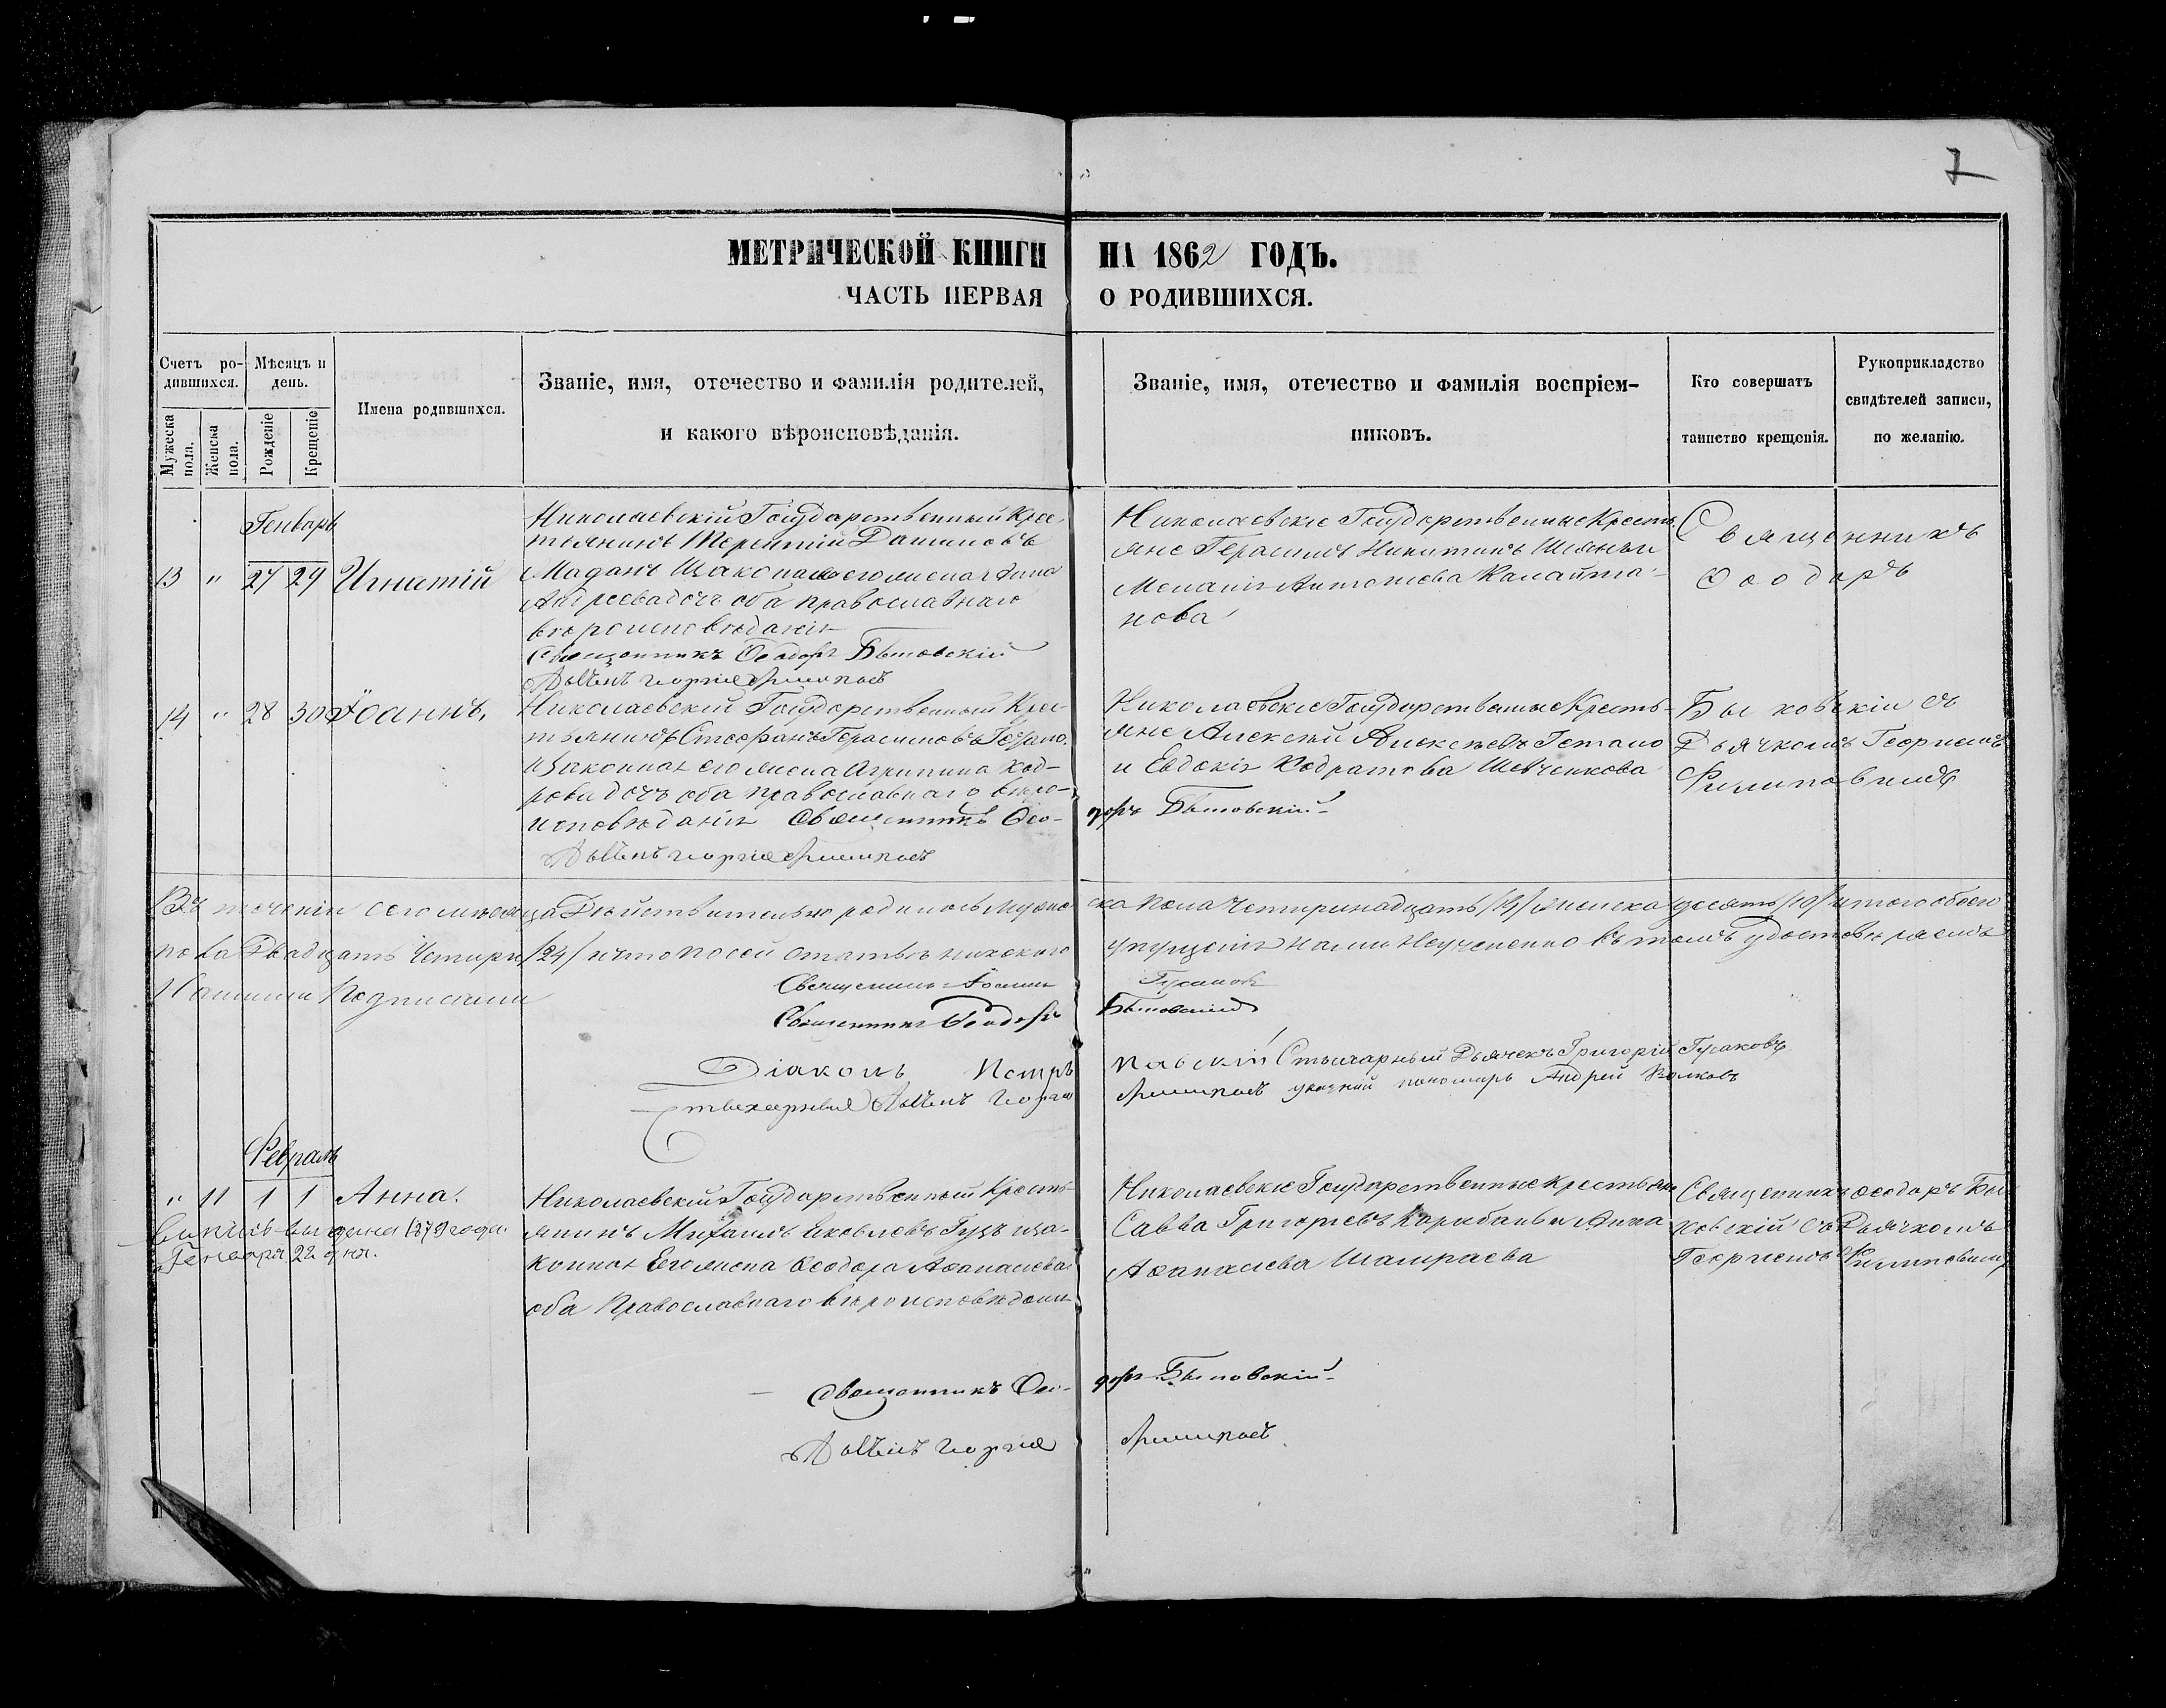 7
МЕТРИЧЕСКОЙ КНИГИ НА 1862 ГОДЪ.
ЧАСТЬ ПЕРВАЯ О РОДИВШИХСЯ.
Счетъ ро-
дившихся.
Мужеска
пола.
Женска
пола.
Мѣсяцъ и
день.
Рожденіе
Крещеніе
Имена родившихся.
Званіе, имя, отечество и фамилія родителей,
и какого вѣроисповѣданія.
Званіе, имя, отечество и фамилія воспріем-
никовъ.
Кто совершатъ
таинство крещенія.
Рукоприкладство
свидѣтелей записи,
по желанію.
Генварь
13 " 27 29 Игнатій
Николаевскій Государственный Крес-
тьянинъ Терентій Даниловъ
Маданъ Изаконная его жена Анна
Андреева дочь оба православнаго
вѣроисповѣданія
Священникъ Ѳеодоръ
Николаевскіе Государственные Кресть-
яне Герасимъ Никитинъ и
Меланія Антонова
нова
Священникъ
Ѳеодоръ
14 " 28 30 Іоаннъ.
Николаевскій Государственный Крес-
тьянинъ Стефанъ Герасимовъ
Изаконная его жена Агрипина Код-
рова дочь оба православнаго вѣро-
исповѣданія Священникъ Ѳео-
доръ
Николаевскіе Государственные Кресть-
яне Алексѣй Алексѣевъ Гетало
и Евдокія Кодратова Шевченкова
Быковскій съ
Дьячкомъ Георгіемъ
Филиповимъ
Въ теченіи сего мѣсяца Дѣйствительно родилось мужеска пола Четиринадцать /14/ женска десять /10/ итого обоего
пола Двадцать Четири /24/ ичто посей статьѣ никокого упущенія нами неучененно въ томъ удостовѣряемъ
Нашими Подписами
Священникъ Іоаннъ Гусаковъ
Священникъ Ѳеодоръ
Діаконъ Петръ Стихарный Дьячекъ Григорій Гусаковъ
Стихарный Дьячекъ пономарь Андрей Волковъ
Февраль
" 11 1 1 Анна.
выдана 1879 года
Генваря 22 дня.
Николаевскій Государственный Кресть-
янинъ Михаилъ Яковлевъ Гузъ иза-
конная Его жена Ѳеодора Аѳанасиева
оба Православнаго вѣроисповѣдані-
Николаевскіе Государственные крестьяне
Савва Григорьевъ и Анна
Аѳанасиева Шамраева
Священникъ Ѳеодоръ Бы-
ковскій съ Дьячкомъ
Георгіемъ Филиповимъ
Священникъ Ѳео-
доръ